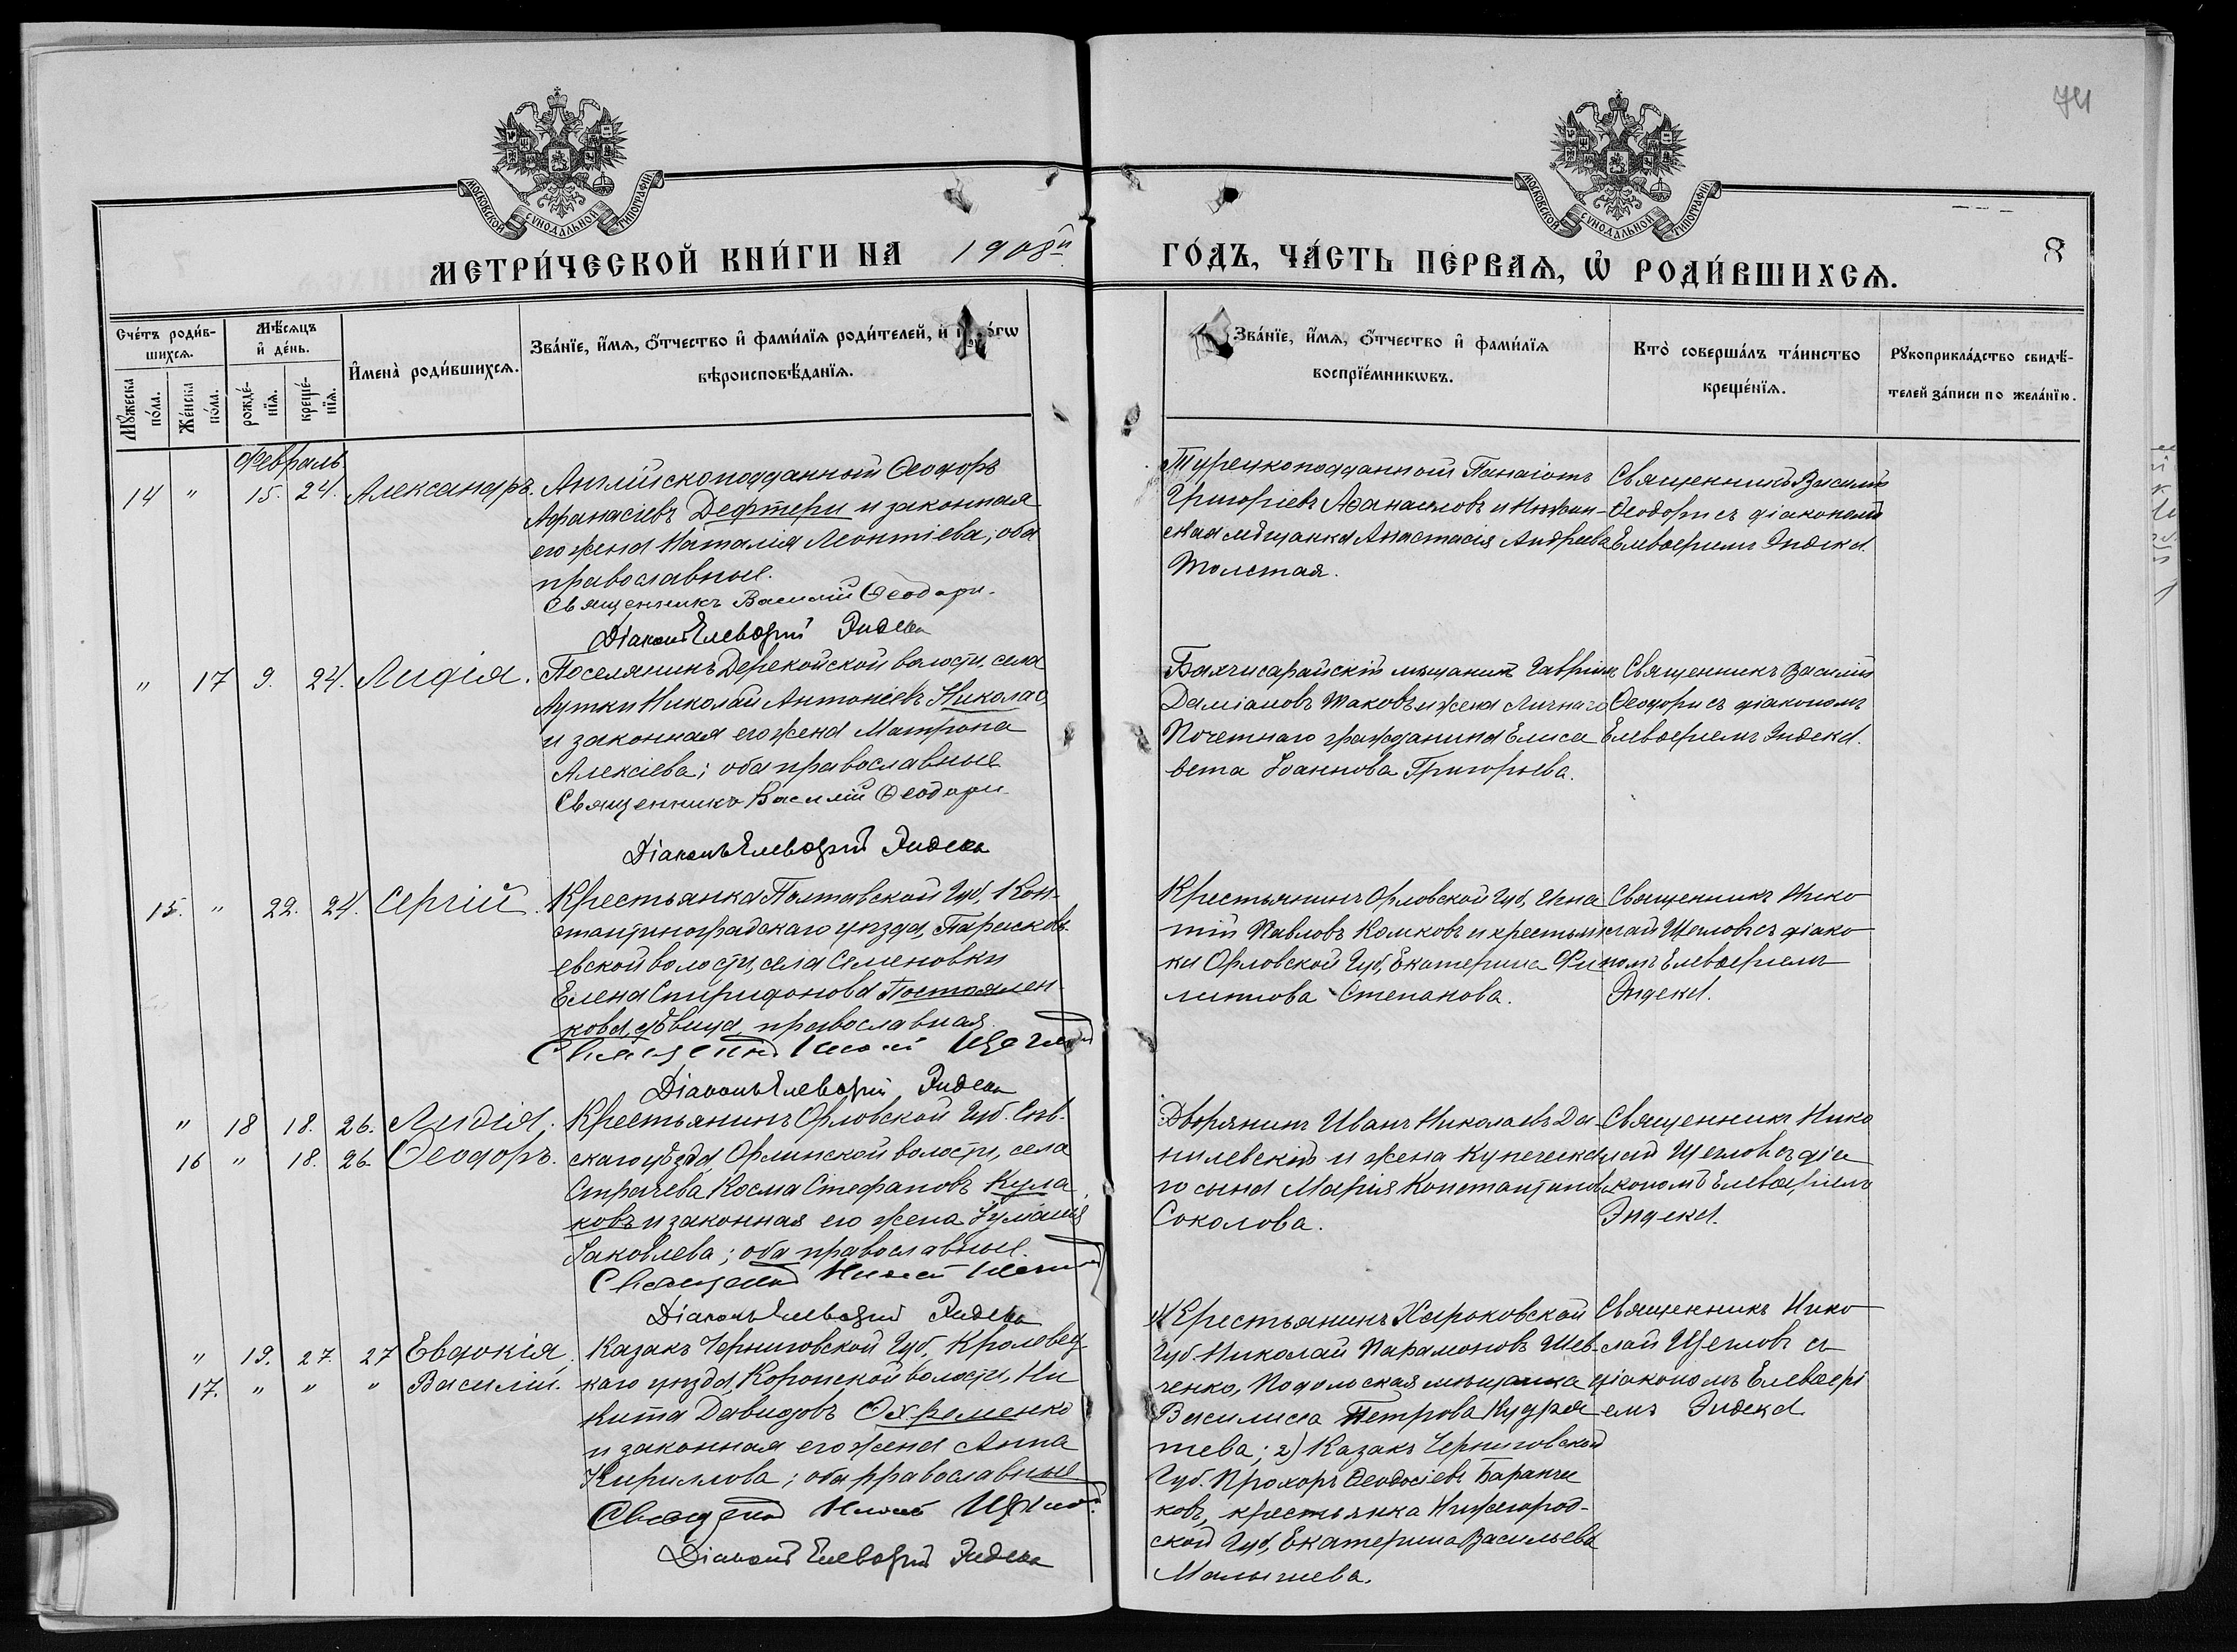 74
МОСКОВСКОЙ СѴНОДАЛЬНОЙ ТИПОГРАФІИ
МОСКОВСКОЙ СѴНОДАЛЬНОЙ ТИПОГРАФІИ
МЕТРИ́ЧЕСКОЙ КНИ́ГИ НА 1908й
ГО́ДЪ, ЧА́СТЬ ПЕ́РВАѦ, Ѡ҆ РОДИ́ВШИХСѦ.
8
Сче́тъ роди́в-
шихсѧ.
Мꙋ́жеска по́ла.
Же́нска по́ла.
Мѣ́сѧцъ
и҆ де́нь.
рожде́-
нїѧ.
креще́-
нїѧ.
И҆мена̀ роди́вшихсѧ.
Зва́нїе, и҆́мѧ, ѻ҆́тчество и҆ фами́лїѧ роди́телей, и҆
вѣроисповѣ́данїѧ.
Зва́нїе, и҆́мѧ, ѻ҆́тчество и҆ фами́лїѧ
воспрїе́мникѡвъ.
Кто̀ соверша́лъ та́инство
креще́нїѧ.
Рꙋкоприкла́дство свидѣ́-
телей за́писи по жела́нїю.
Февраль
14 " 15. 24. Александръ.
Англійскоподданный Ѳеодоръ
Афанасіевъ Дефтери и законная
его жена Наталія Леонтіева, оба
православные.
Священникъ Василій Ѳеодори.
Діаконъ Елевѳерій Эндека
Турецкоподданный Панаіотъ
Григоріевъ Аѳанасіовъ и Нижин-
ская мѣщанка Анастасія Андреева
Толстая.
Священникъ Василій
Ѳеодори съ діакономъ
Елевѳеріемъ Эндека.
" 17 9. 24. Лидія.
Поселянинъ Дерекойской волости, села
Аутки Николай Антоніевъ Николао,
и законная его жена Матрона
Алексіева; оба православные
Священникъ Василій Ѳеодори
Діаконъ Елевѳерій Эндека
Бахчисарайскій мѣщанинъ Гавріилъ
Даміановъ Таковъ и жена Личнаго
Почетнаго гражданина Елиса
вета Іоаннова Григорьева.
Священникъ Василій
Ѳеодори съ діакономъ
Елевѳеріемъ Эндека.
15. " 22. 24. Сергій.
Крестьянка Полтавской Губ, Кон-
стантиноградскаго уѣзда, Парасков-
евской волости, села Семеновки
Елена Спиридонова Постоялен-
кова, дѣвица, православная
Священникъ Николай Щегловъ
Діаконъ Елевѳерій Эндека
Крестьянинъ Орловской Губ, Игна
тій Павловъ Комковъ и крестьян
ка Орловской Губ, Екатерина Фи
липпова Степанова.
Священникъ Нико
лай Щегловъ съ діако
номъ Елевѳеріемъ
Эндека.
" 18 18. 26. Лидія.
16 " 18. 26. Ѳеодоръ.
Крестьянинъ Орловской Губ. Сѣв-
скаго уѣзда, Орлинской волости, села
Страчева Косма Стефановъ Кула
ковъ и законная его жена Іуліанія
Іаковлева; оба православные.
Священникъ Николай Щегловъ
Діаконъ Елевѳерій Эндека
Дворянинъ Иванъ Николаевъ Да-
нилевскій и жена купеческа
го сына Марія Константинова
Соколова.
Священникъ Нико
лай Щегловъ съ діа
кономъ Елевѳеріемъ
Эндека.
" 19. 27. 27 Евдокія.
17. " " " Василій.
Казакъ Черниговской Губ, Кролевец-
каго уѣзда, Коропской волости, Ни
кита Давидовъ Охременко
и законная его жена Анна
Кириллова; оба православные
Священникъ Николай Щегловъ
Діаконъ Елевѳерій Эндека
1) Крестьянинъ Харьковской
Губ. Николай Парамоновъ Шев-
ченко, Подольская мѣщанка
Василиса Петрова Кудря
шева; 2) Казакъ Черниговской
Губ. Прохоръ Ѳеодосіевъ Баранчи
ковъ, крестьянка Нижегород-
ской Губ, Екатерина Васильева
Малышева.
Священникъ Нико
лай Щегловъ съ
діакономъ Елевѳері
емъ Эндека